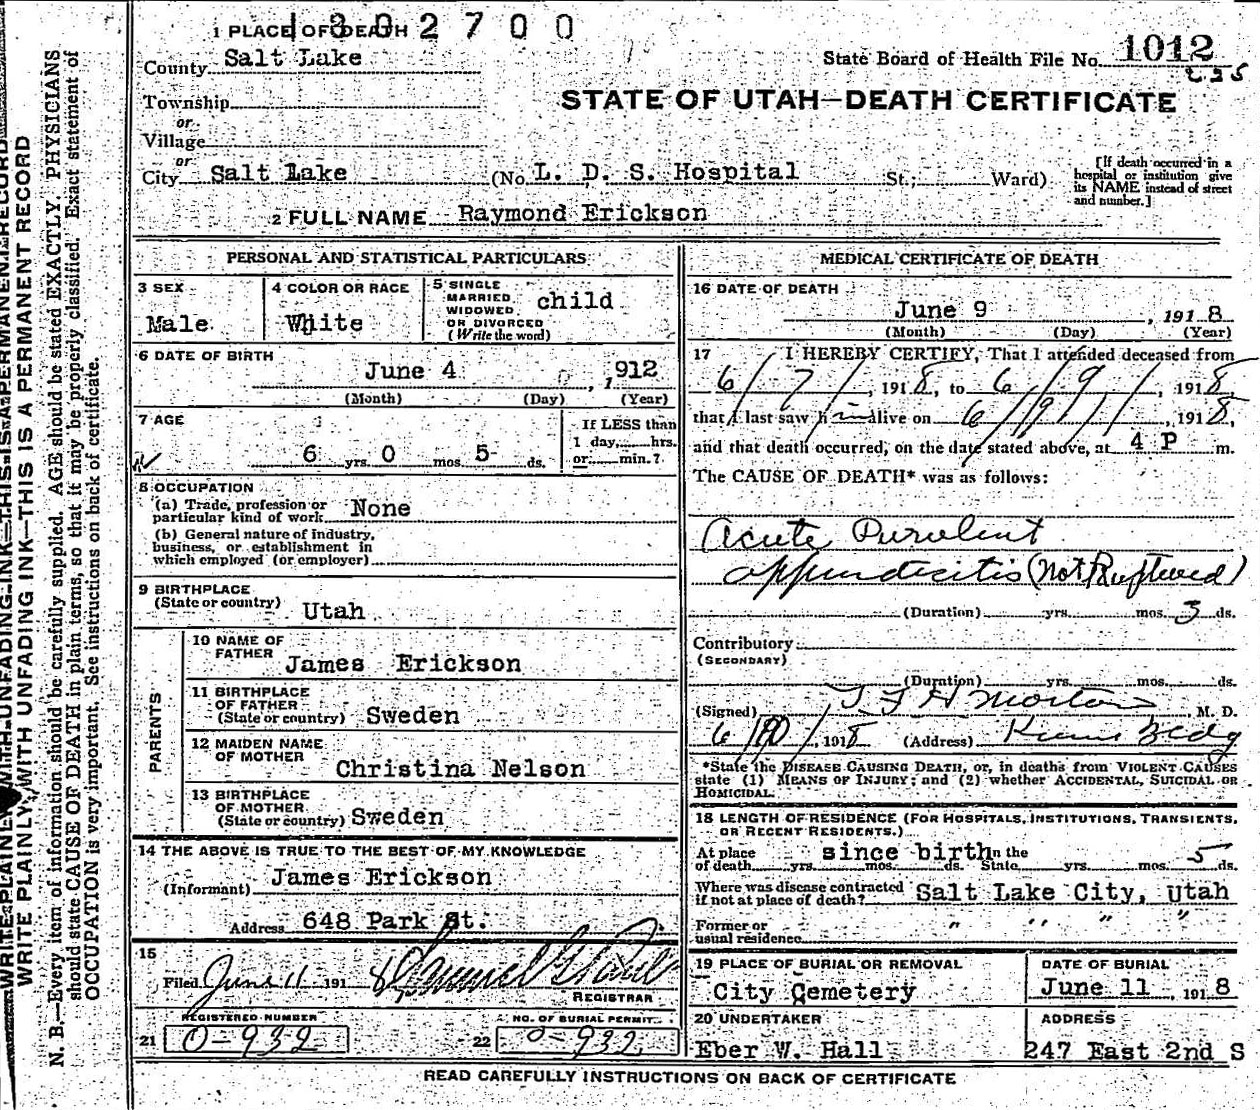 1302700
1 PLACE OF DEATH
County Salt Lake
State Board of Health File No. 1012
Township
or
Village
or
STATE OF UTAH—DEATH CERTIFICATE
City Salt Lake (No. L. D. S. Hospital St.; Ward)
[If death occurred in a
hospital or institution give
its NAME instead of street
and number.]
2 FULL NAME Raymond Erickson
PERSONAL AND STATISTICAL PARTICULARS
3 SEX
Male
4 COLOR OR RACE
White
5 SINGLE
MARRIED
WIDOWED
OR DIVORCED
(Write the word)
child
6 DATE OF BIRTH
June 4, 1912
(Month) (Day) (Year)
7 AGE
6 yrs. 0 mos. 5 ds.
If LESS than
1 day, hrs.
or min.?
8 OCCUPATION
(a) Trade, profession or
particular kind of work None
(b) General nature of industry,
business, or establishment in
which employed (or employer)
9 BIRTHPLACE
(State or country) Utah
PARENTS
10 NAME OF
FATHER James Erickson
11 BIRTHPLACE
OF FATHER
(State or country) Sweden
12 MAIDEN NAME
OF MOTHER
Christina Nelson
13 BIRTHPLACE
OF MOTHER
(State or country) Sweden
14 THE ABOVE IS TRUE TO THE BEST OF MY KNOWLEDGE
(Informant) James Erickson
Address 648 Park St.
15
Filed June 11 1918
REGISTRAR
REGISTERED NUMBER
21 0-932
NO. OF BURIAL PERMIT
22 0-932
MEDICAL CERTIFICATE OF DEATH
16 DATE OF DEATH
June 9, 1918
(Month) (Day) (Year)
17 I HEREBY CERTIFY, That I attended deceased from
6/7/, 1918, to 6/9/, 1918
that I last saw him alive on 6/9/, 1918,
and that death occurred, on the date stated above, at 4 P m.
The CAUSE OF DEATH* was as follows:
Acute Purulent
appendicitis (Not Ruptured)
(Duration) yrs. mos. 3 ds.
Contributory
(SECONDARY)
(Duration) yrs. mos. ds.
(Signed) Morton, M. D.
1918 (Address) Bldg
*State the DISEASE CAUSING DEATH, or, in deaths from VIOLENT CAUSES
state (1) MEANS OF INJURY; and (2) whether ACCIDENTAL, SUICIDAL OR
HOMICIDAL.
18 LENGTH OF RESIDENCE (FOR HOSPITALS, INSTITUTIONS, TRANSIENTS,
OR RECENT RESIDENTS.)
At place since birth In the
of death yrs. mos. ds. State yrs. mos. 5 ds.
Where was disease contracted
if not at place of death? Salt Lake City, Utah
Former or
usual residence " " " "
19 PLACE OF BURIAL OR REMOVAL
City Cemetery
DATE OF BURIAL
June 11, 1918
20 UNDERTAKER
Eber W. Hall
ADDRESS
247 East 2nd S
READ CAREFULLY INSTRUCTIONS ON BACK OF CERTIFICATE
WRITE PLAINLY WITH UNFADING INK—THIS IS A PERMANENT RECORD
WRITE PLAINLY, WITH UNFADING INK—THIS IS A PERMANENT RECORD
N. B.—Every item of information should be carefully supplied. AGE should be stated EXACTLY. PHYSICIANS
should state CAUSE OF DEATH in plain terms, so that it may be properly classified. Exact statement of
OCCUPATION is very important. See instructions on back of certificate.